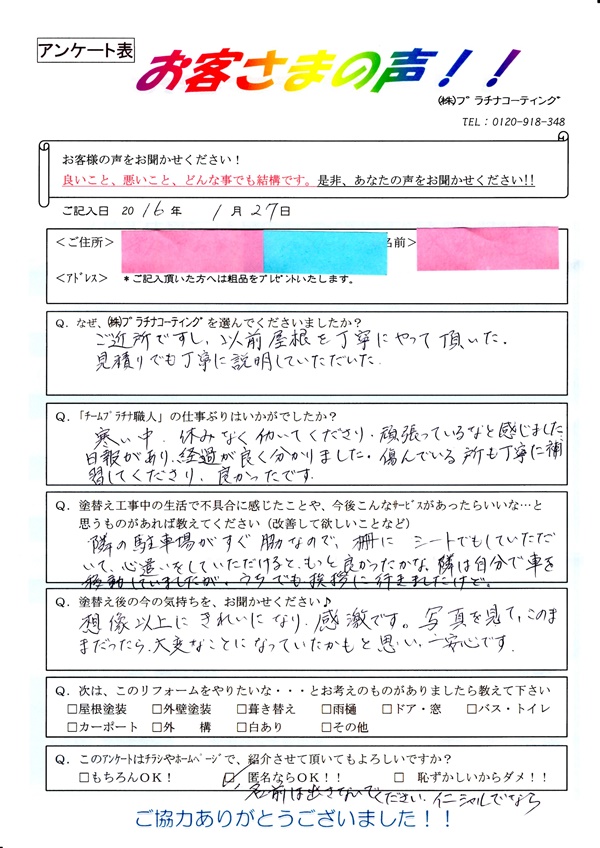 アンケート表
お客さまの声！！
㈱プラチナコーティング
TEL：0120-918-348
お客様の声をお聞かせください！
良いこと、悪いこと、どんな事でも結構です。是非、あなたの声をお聞かせください!!
ご記入日 2016年 1月27日
＜ご住所＞ 名前＞
＜アドレス＞ ＊ご記入頂いた方へは粗品をプレゼントいたします。
Q．なぜ、㈱プラチナコーティングを選んでくださいましたか？
ご近所ですし、以前屋根を丁寧にやって頂いた。
見積りでも丁寧に説明していただいた.
Q．「チームプラチナ職人」の仕事ぶりはいかがでしたか？
寒い中、休みなく働いてくださり、頑張っているなと感じました
日報があり、経過が良く分かりました。傷んでいる所も丁寧に補
習してくださり、良かったです.
Q．塗替え工事中の生活で不具合に感じたことや、今後こんなサービスがあったらいいな…と
思うものがあれば教えてください（改善して欲しいことなど）
隣の駐車場がすぐ脇なので、柵に シートでもしていただ
いて、心遣いをしていただけると、もっと良かったかな。隣は自分で車を
移動していましたが。うちでも挨拶に行きましたけど。
Q．塗替え後の今の気持ちを、お聞かせください♪
想像以上にきれいになり、感激です。写真を見て、このま
まだったら、大変なことになっていたかもと思い、一安心です.
Q．次は、このリフォームをやりたいな・・・とお考えのものがありましたら教えて下さい
□屋根塗装 □外壁塗装 □葺き替え □雨樋 □ドア・窓 □バス・トイレ
□カーポート □外 構 □白あり □その他
Q．このアンケートはチラシやホームページで、紹介させて頂いてもよろしいですか？
□もちろんOK！ ☑ 匿名ならOK！！ □ 恥ずかしいからダメ！！
名前は出さないでください. イニシャルでなら
ご協力ありがとうございました！！